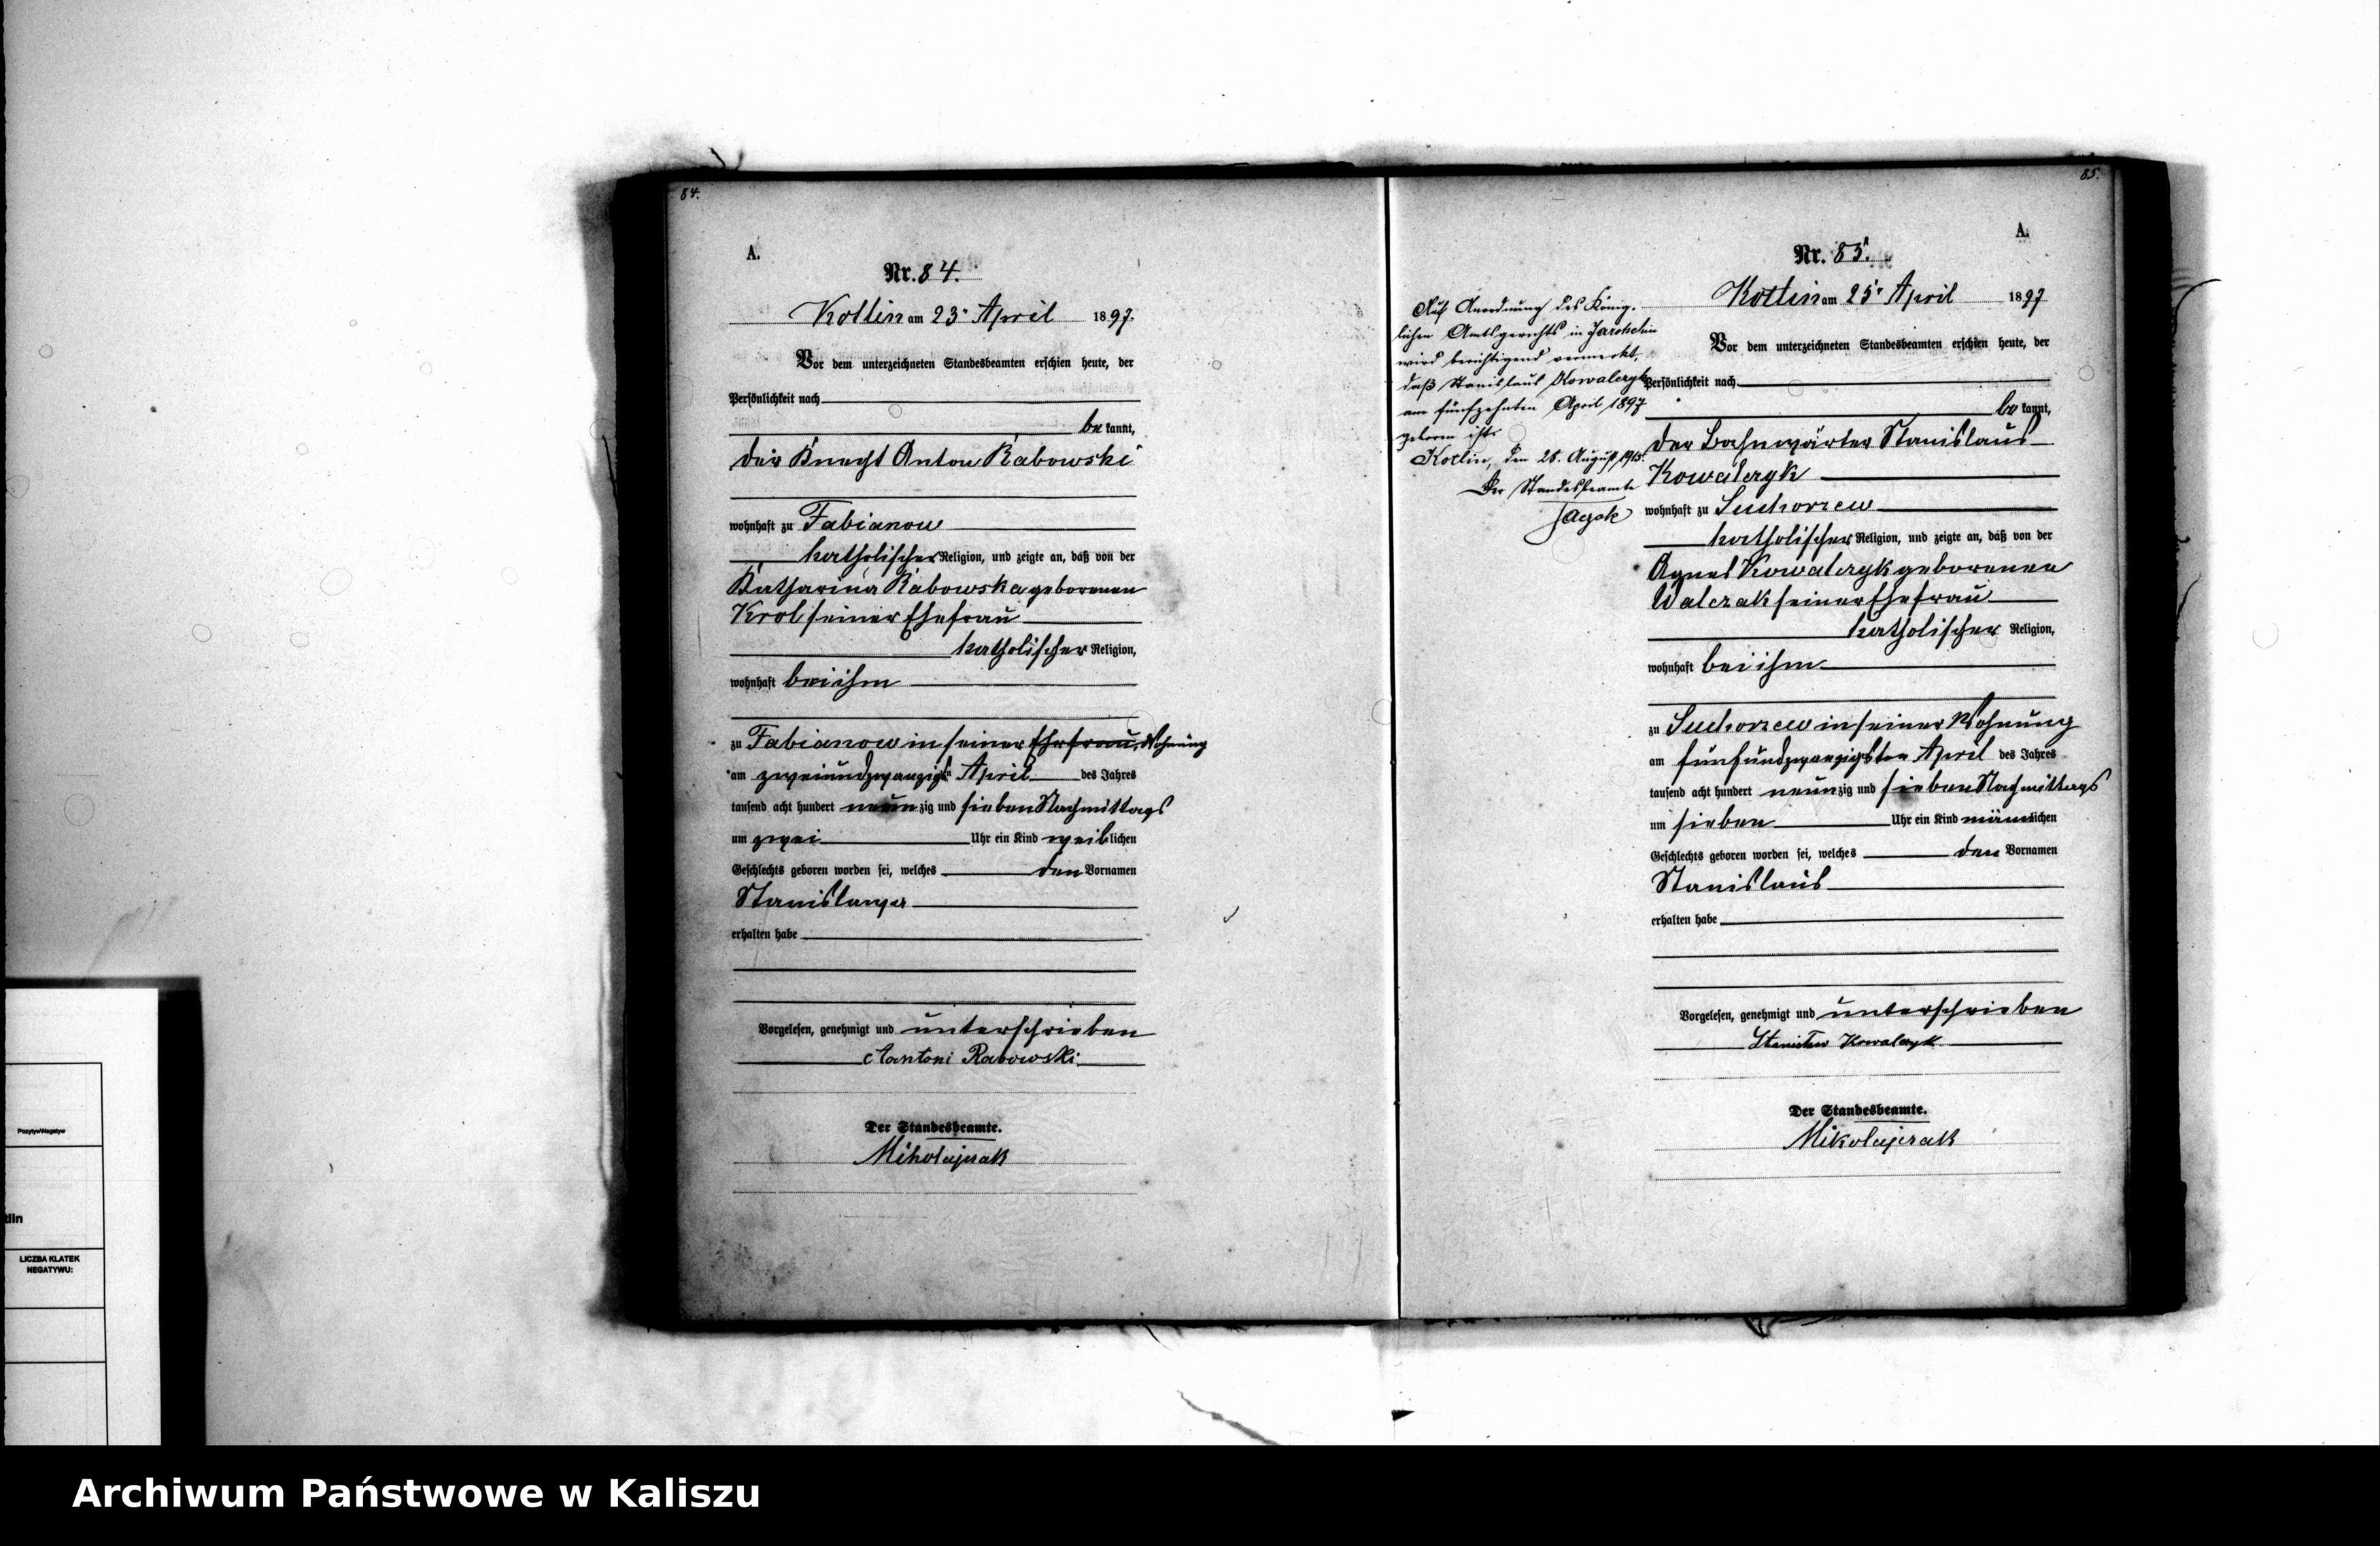 84.
A.
Nr. 84.
Kotlin am 23. April 1897.
Vor dem unterzeichneten Standesbeamten erschien heute, der
Persönlichkeit nach
be kannt,
der Knecht Anton Rabowski
wohnhaft zu Fabianow
katholischer Religion, und zeigte an, daß von der
Katharina Rabowska geborenen
Krol seiner Ehefrau
katholischer Religion,
wohnhaft bei ihm
zu Fabianow in seiner Ehefrau, Wohnung
am zweiundzwanzigsten April des Jahres
tausend acht hundert neunzig und sieben Nachmittags
um zwei Uhr ein Kind weiblichen
Geschlechts geboren worden sei, welches den Vornamen
Stanislawa
erhalten habe
Vorgelesen, genehmigt und unterschrieben
Antoni Rabowski
Der Standesbeamte.
Mikolajczak
85.
A.
Nr. 85.
Kotlin am 25. April 1897
Vor dem unterzeichneten Standesbeamten erschien heute, der
Persönlichkeit nach
be kannt,
der Bahnwärter Stanislaus
Kowalczyk
wohnhaft zu Suchorzew
katholischer Religion, und zeigte an, daß von der
Agnes Kowalczyk geborenen
Walczak seiner Ehefrau
katholischer Religion,
wohnhaft bei ihm
zu Suchorzew in seiner Wohnung
am fünfundzwanzigsten April des Jahres
tausend acht hundert neunzig und sieben Nachmittags
um sieben Uhr ein Kind männlichen
Geschlechts geboren worden sei, welches den Vornamen
Stanislaus
erhalten habe
Vorgelesen, genehmigt und unterschrieben
Stanisław Kowalczyk
Der Standesbeamte.
Mikolajczak
Auf Anordnung des König-
lichen Amtsgerichts in Jarotschin
wird berichtigend vermerkt,
daß Stanislaus Kowalczyk
am fünfzehnten April 1897
geboren ist.
Kotlin, den 28. August 1915.
Der Standesbeamte
Pozytyw/Negatyw
tlin
LICZBA KLATEK
NEGATYWU:
Archiwum Państwowe w Kaliszu